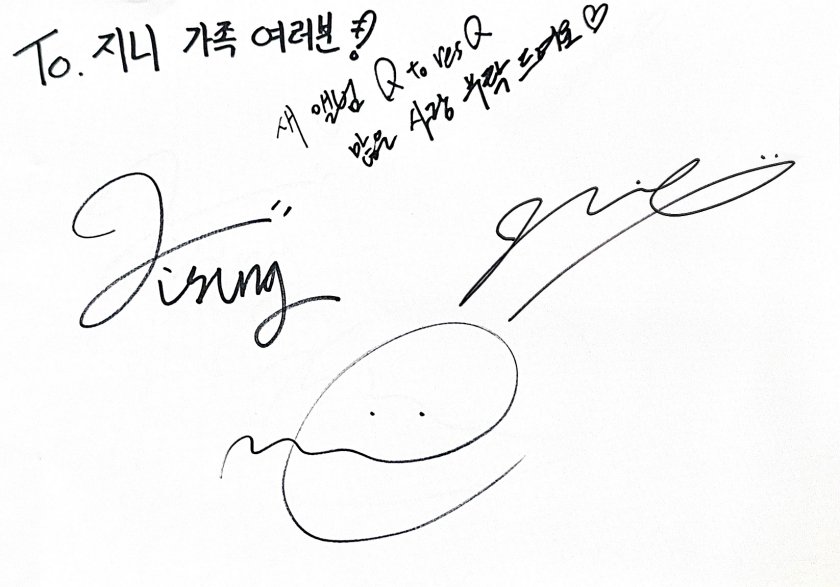 To. 지니 가족 여러분
새 앨범 Q to resQ
많은 사랑 부탁 드려요♡
Jisung